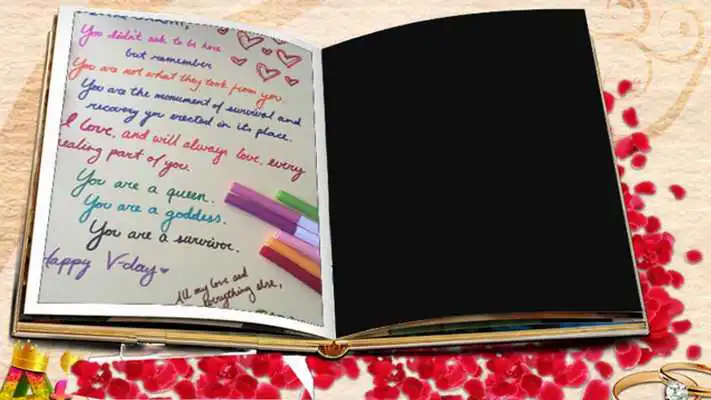 You didn't ask to be here
but remember
You are not what they took from you.
You are the monument of survival and
recovery you erected in its place.
I love, and will always love, every
healing part of you.
You are a queen.
You are a goddess.
You are a survivor.
Happy V-day
All my love and
everything else,